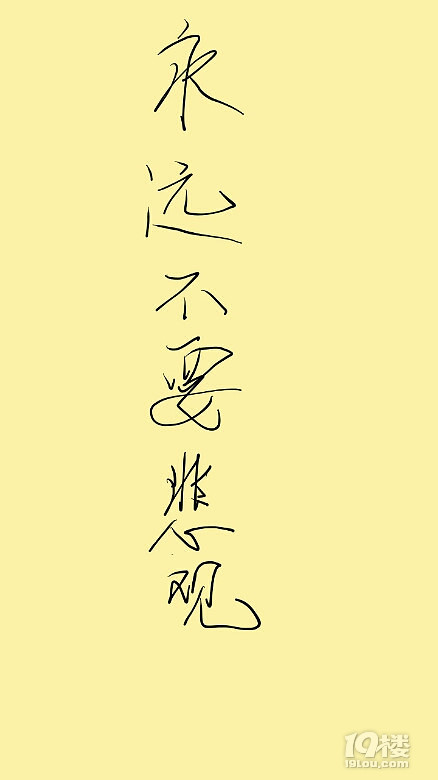 永远不要悲观
19楼
19lou.com